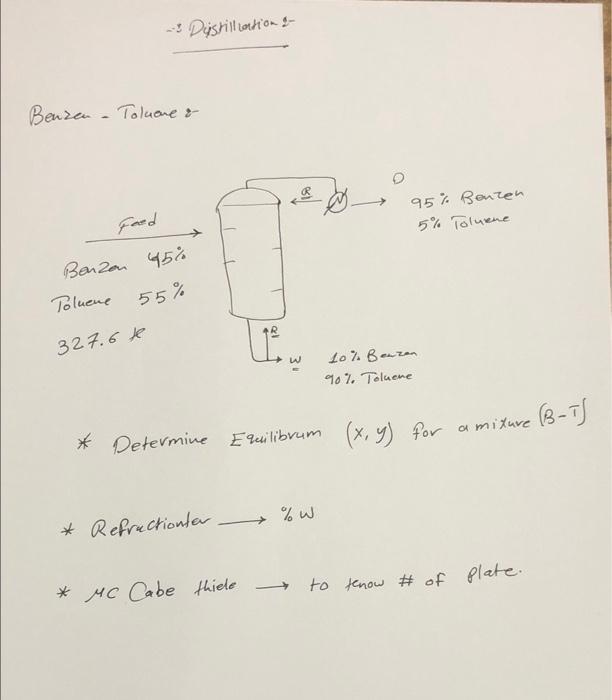 -: Distillation :-
Benzen - Toluene :-
Feed
Benzen 45%
Toluene 55%
327.6 k
R
D
95% Benzen
5% Toluene
R
W
10% Benzen
90% Toluene
* Determine Equilibrum (x, y) for a mixture (B-T)
* Refractionter → % W
* MC Cabe thiele → to know # of plate.